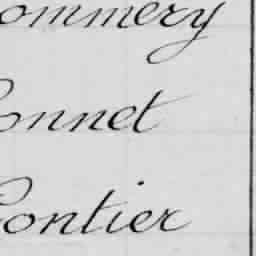 ommery
onnet
Pontier